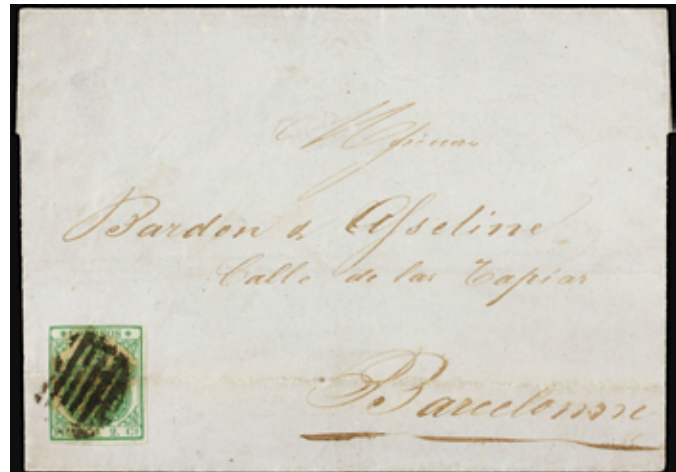 Messieurs
Bardon & Asseline
Calle de las Tapias
Barcelonne